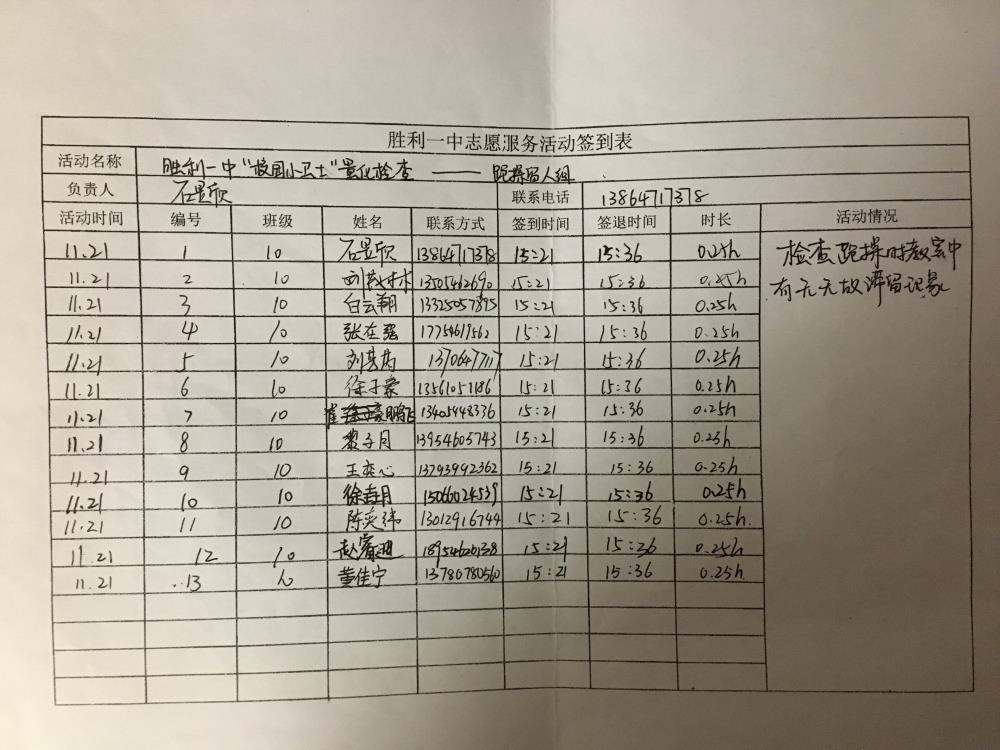 胜利一中志愿服务活动签到表
活动名称 胜利一中"校园小卫士"量化检查——跑操留人组
负责人 石昱欣 联系电话 13864717378
活动时间 编号 班级 姓名 联系方式 签到时间 签退时间 时长 活动情况
11.21 1 10 石昱欣 13864717378 15:21 15:36 0.25h 检查跑操时教室中
11.21 2 10 15:21 15:36 0.25h 有无无故滞留现象
11.21 3 10 白云翔 13325057895 15:21 15:36 0.25h
11.21 4 10 张在强 17754619562 15:21 15:36 0.25h
11.21 5 10 15:21 15:36 0.25h
11.21 6 10 徐子豪 13561057186 15:21 15:36 0.25h
11.21 7 10 崔鹏飞 13405448336 15:21 15:36 0.25h
11.21 8 10 黎子月 13954605743 15:21 15:36 0.25h
11.21 9 10 王奕心 13793992362 15:21 15:36 0.25h
11.21 10 10 15066024539 15:21 15:36 0.25h
11.21 11 10 陈奕玮 13012916744 15:21 15:36 0.25h
11.21 12 10 15:21 15:36 0.25h
11.21 13 10 董佳宁 13780780560 15:21 15:36 0.25h